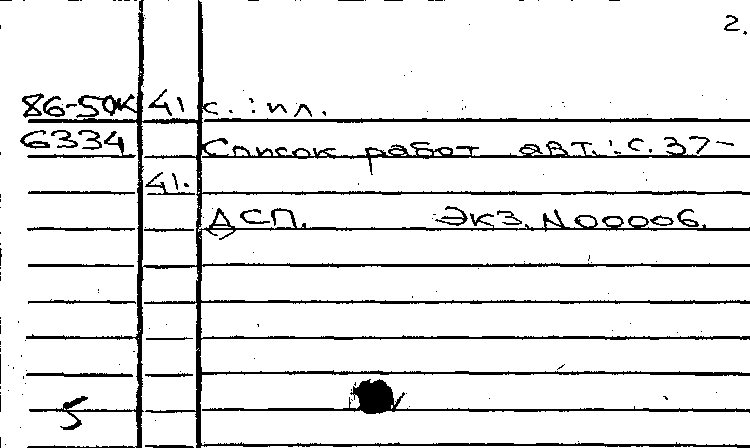 2.
86-5ДК 41 с. : ил.
6334 Список работ авт.: с. 37-
41.
ДСП. Экз. N00006.
5